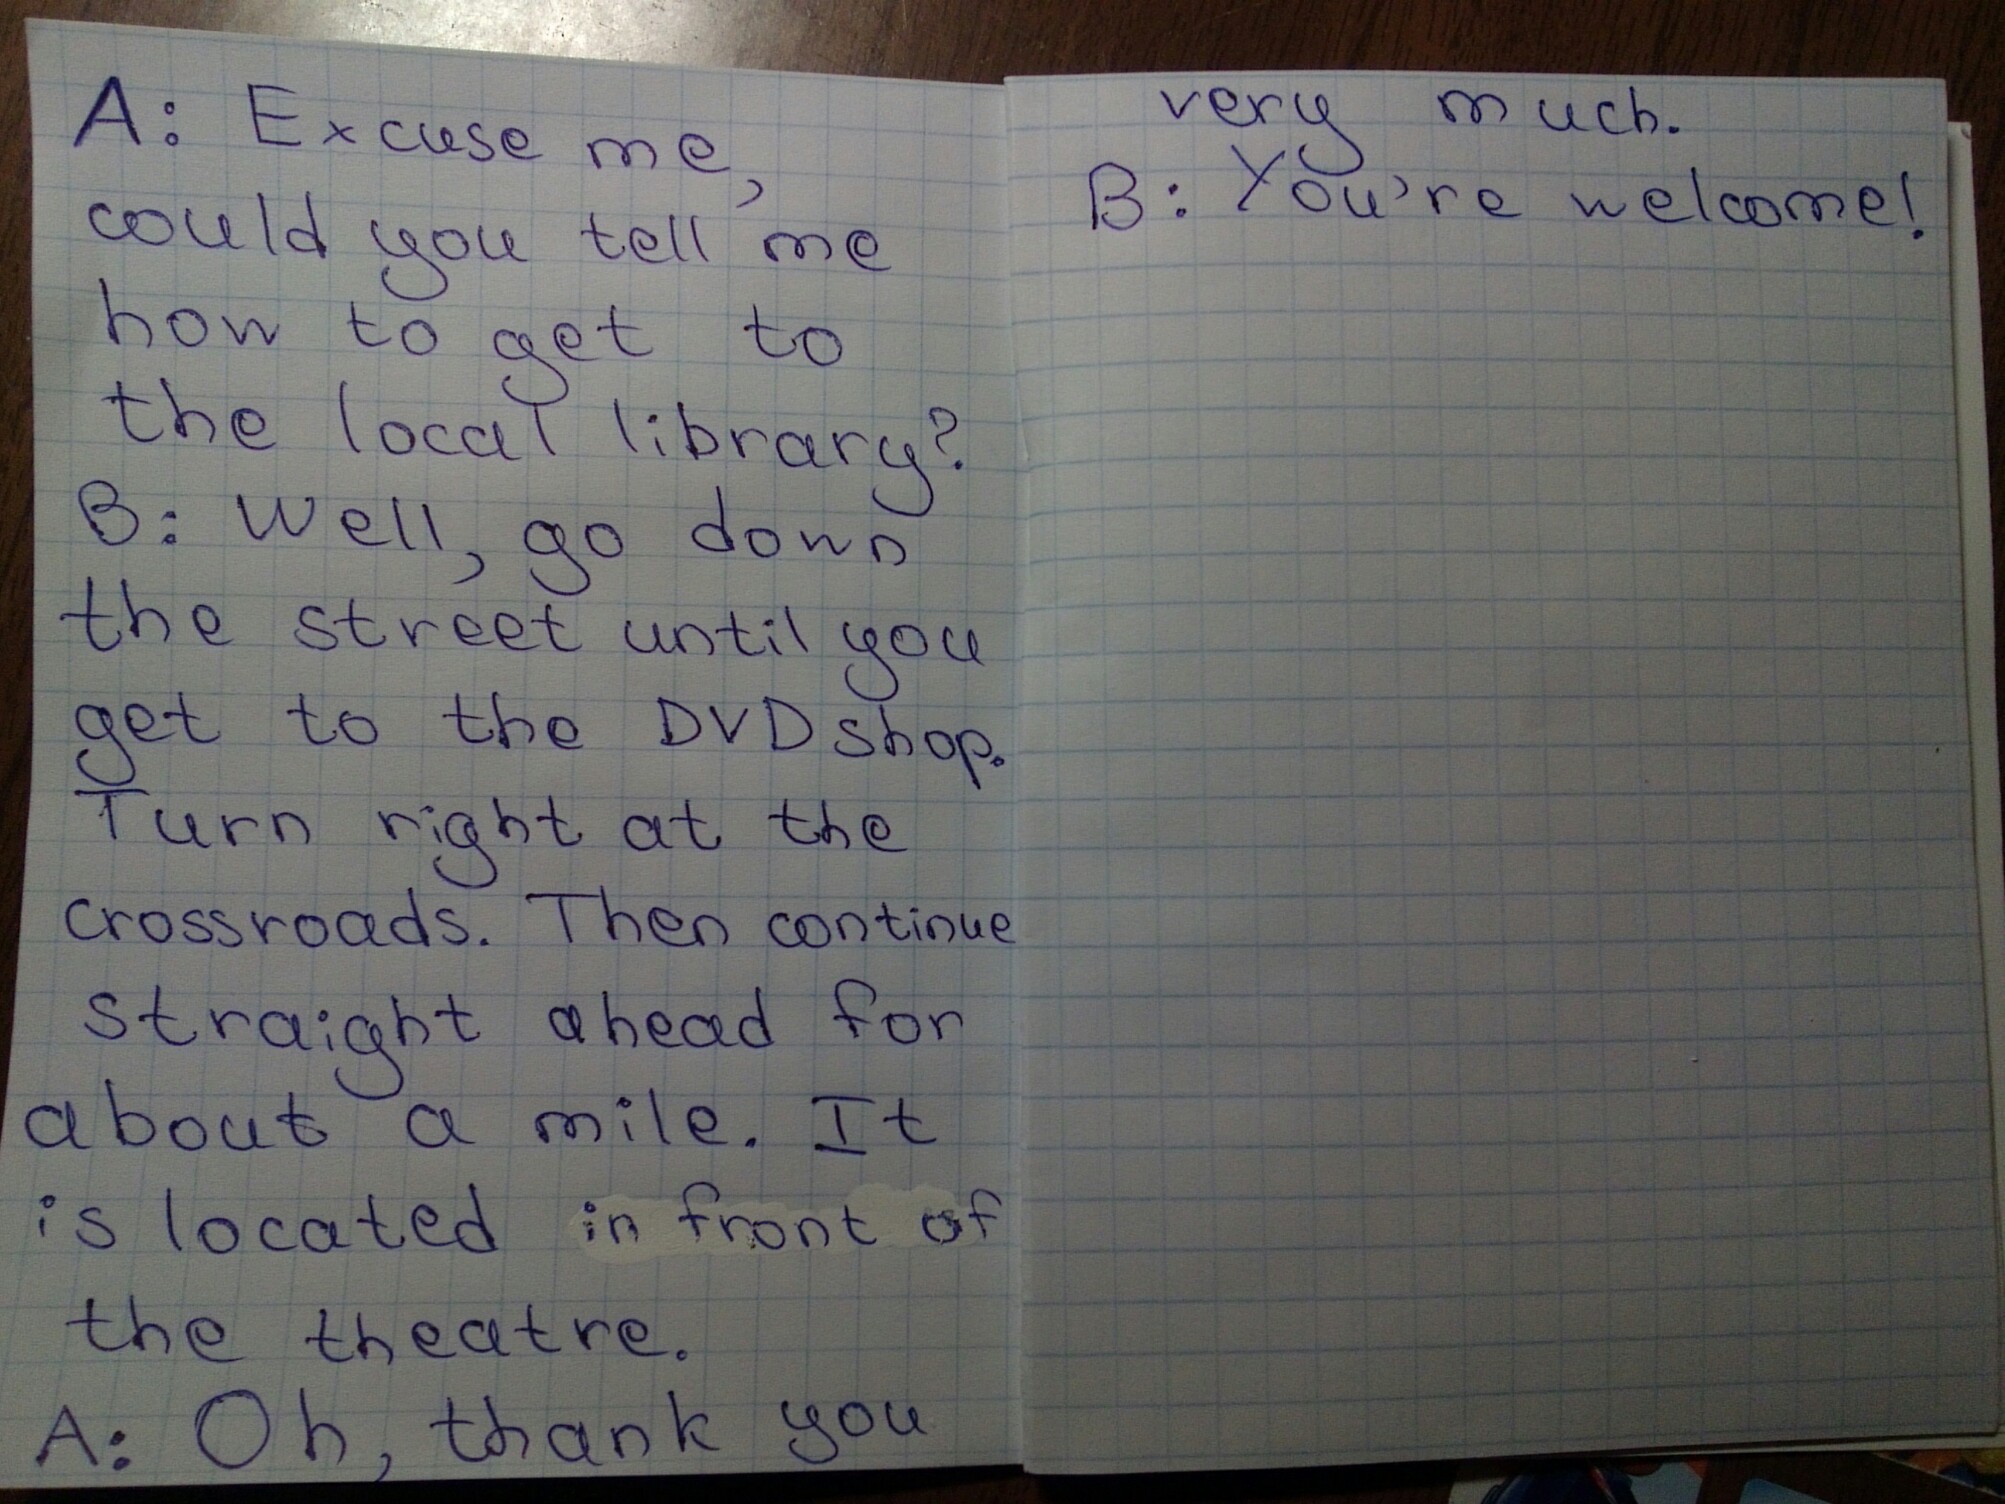 A: Excuse me,
could you tell me
how to get to
the local library?
B: Well, go down
the street until you
get to the DVD shop.
Turn right at the
crossroads. Then continue
straight ahead for
about a mile. It
is located in front of
the theatre.
A: Oh, thank you
very much.
B: You're welcome!